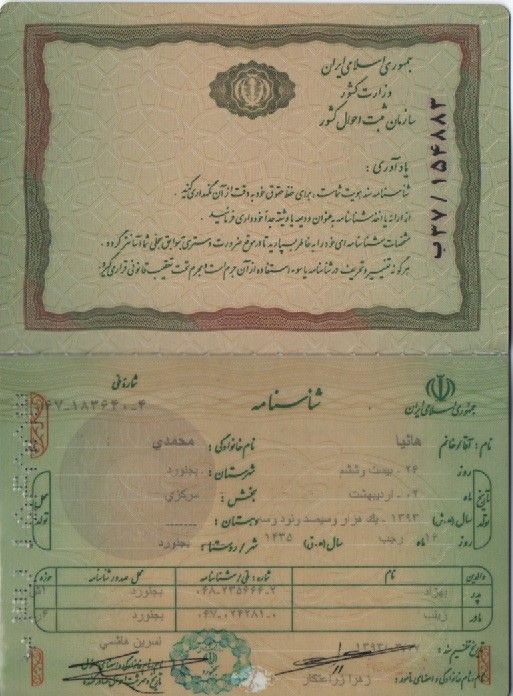 جمهوری اسلامی ایران
وزارت کشور
سازمان ثبت احوال کشور
ب۳۷/۱۵۴۸۸۳
یادآوری :
شناسنامه سند هویت شماست، برای حفظ حقوق خود به دقت از آن نگهداری کنید .
از ارائه یا اخذ شناسنامه به عنوان ودیعه یا وثیقه جداً خودداری فرمائید .
مشخصات شناسنامه ای خود را به خاطر بسپارید تا در موقع ضرورت دسترسی به سوابق سجلی شما آسانتر گردد .
هرگونه تغییر و تحریف در شناسنامه یا سوء استفاده از آن جرم است و مجرم تحت تعقیب قانونی قرار می گیرد .
جمهوری اسلامی ایران
شناسنامه
شماره ملی
۰۶۷-۱۸۳۶۴۰-۴
نام : آقا/خانم هانیا نام خانوادگی : محمدی
تاریخ تولد
روز ۲۶ - بیست وششم شهرستان : بجنورد
ماه ۰۲ - اردیبهشت بخش : مرکزی
سال (ه.ش) ۱۳۹۳ - یک هزار وسیصد ونود وسه دهستان : ـــــ
روز ۱۶ ماه رجب سال (ه.ق) ۱۴۳۵ شهر / روستا : بجنورد
محل تولد
والدین نام شماره : ملی / شناسنامه محل صدور شناسنامه حوزه
پدر بهزاد ۰۴۸-۲۳۵۶۶۴-۲ بجنورد
مادر زینب ۰۴۷-۰۲۴۲۸۱-۰ بجنورد
تاریخ تنظیم سند :
نسرین هاشمی
نام ، نام خانوادگی و امضای مامور : زهرا زراعتکار